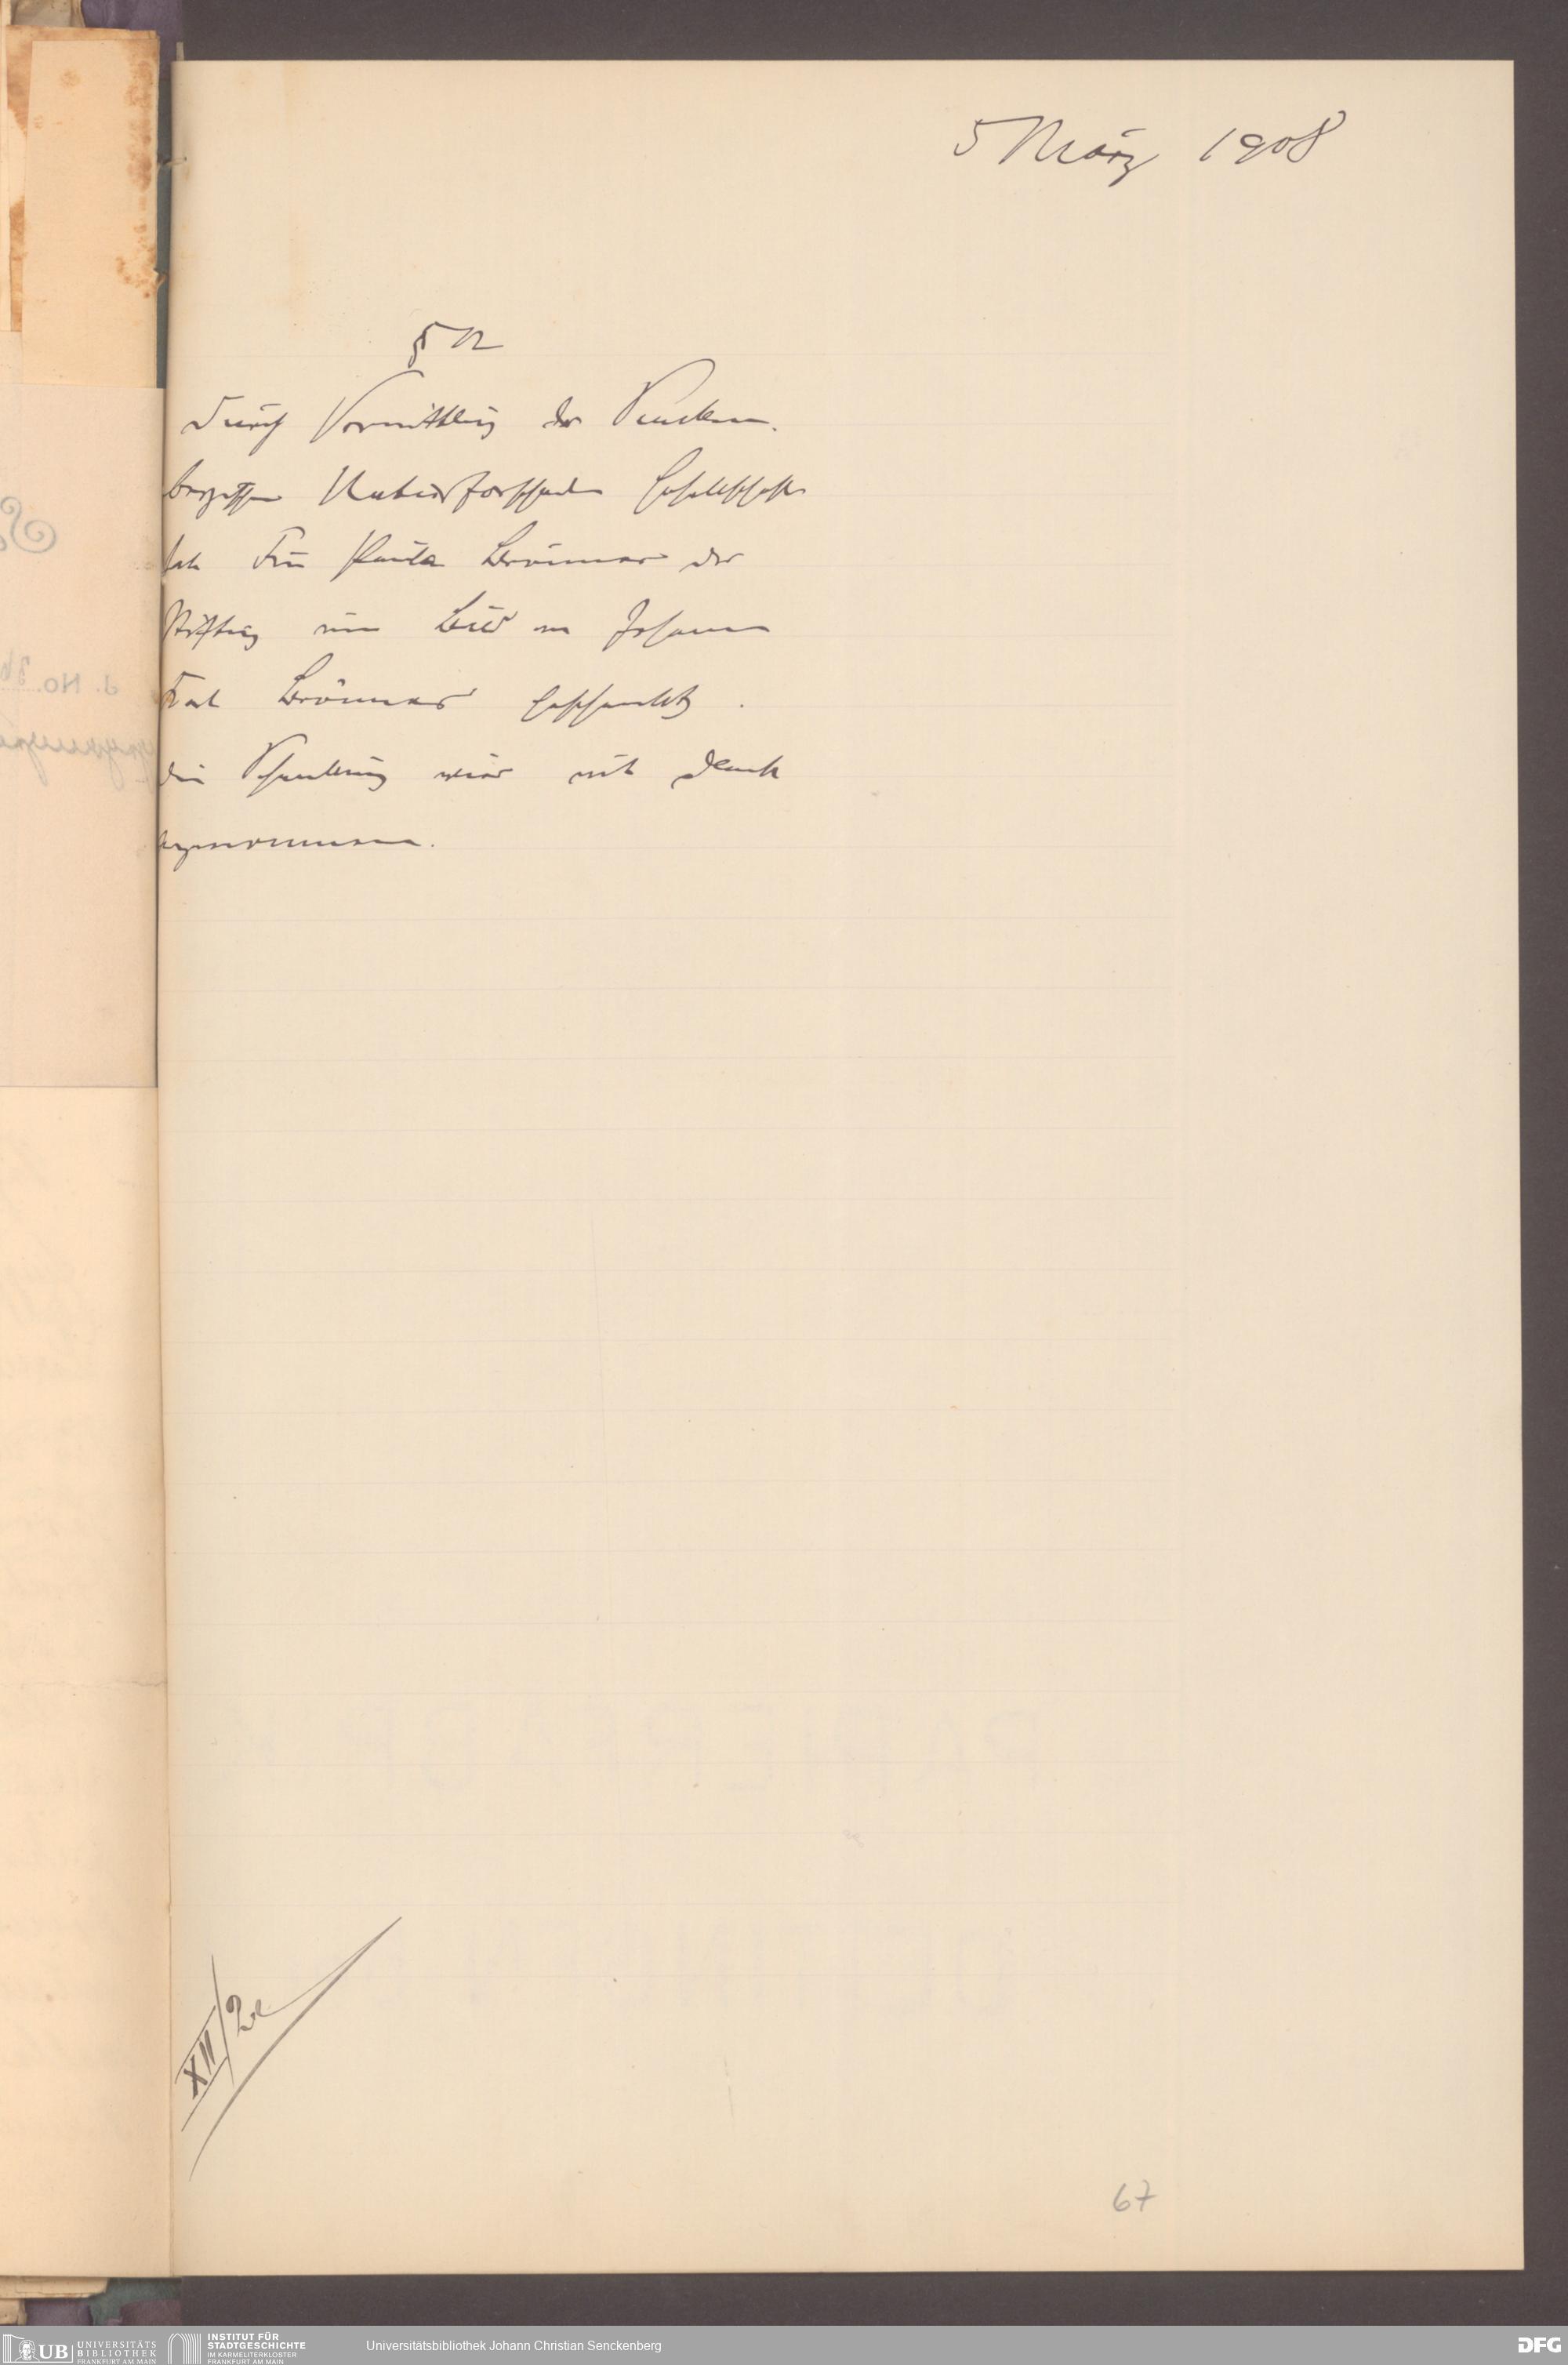 5 März 1908
§ 12
Durch Vermittlung der Sencken-
bergischen Naturforschenden Gesellschaft
hat Frau Paula Brönner der
Stiftung ein Bild von Johann
Karl Brönner geschenkt.
Die Schenkung wird mit Dank
angenommen.
XII/2e
67
J. No.
UB UNIVERSITÄTS
BIBLIOTHEK
FRANKFURT AM MAIN
INSTITUT FÜR
STADTGESCHICHTE
IM KARMELITERKLOSTER
FRANKFURT AM MAIN
Universitätsbibliothek Johann Christian Senckenberg
DFG